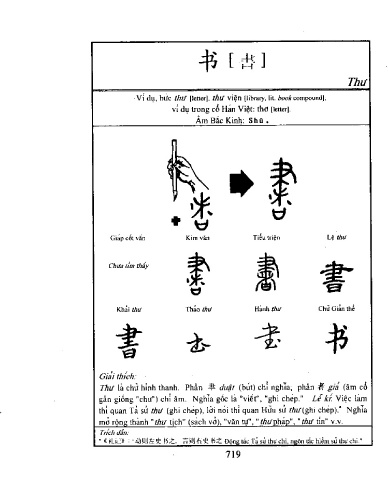 书 [ 書 ]
Thư
Ví dụ, bức thư [letter], thư viện [library, lit. book compound],
ví dụ trong cổ Hán Việt: thơ [letter].
Âm Bắc Kinh: Shū.
Giáp cốt văn Kim văn Tiểu triện Lệ thư
Chưa tìm thấy 書 書 書
Khải thư Thảo thư Hành thư Chữ Giản thể
書 书 书 书
Giải thích:
Thư là chữ hình thanh. Phần 聿 duật (bút) chỉ nghĩa, phần 者 giả (âm cổ
gần giống "chư") chỉ âm. Nghĩa gốc là "viết", "ghi chép." Lễ kí. Việc làm
thì quan Tả sử thư (ghi chép), lời nói thì quan Hữu sử thư (ghi chép)." Nghĩa
mở rộng thành "thư tịch" (sách vở), "văn tự", "thư pháp", "thư tín" v.v.
Trích dẫn:
动则左史书之, 言则右史书之 Động tắc Tả sử thư chi, ngôn tắc hữu sử thư chi."
719